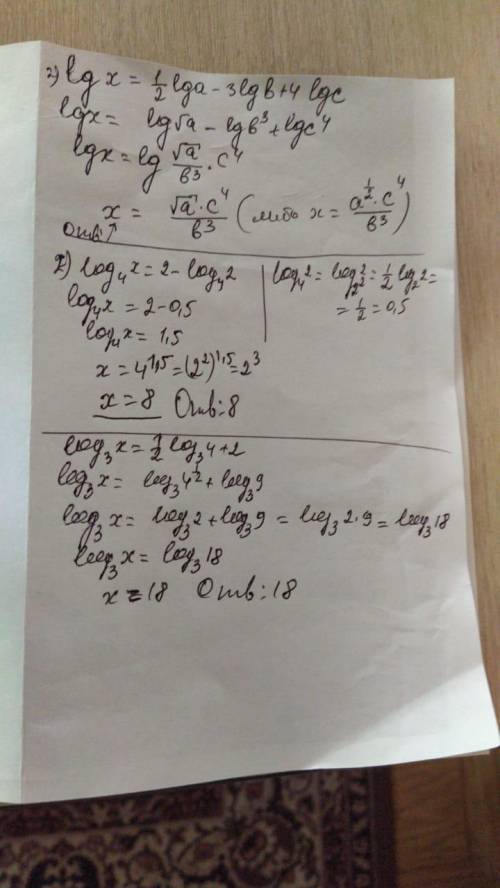 2) lg x = 1/2 lg a - 3 lg b + 4 lg c
lg x = lg √a - lg b³ + lg c⁴
lg x = lg √a/b³ · c⁴
x = √a · c⁴/b³ (либо x = a^½ · c⁴/b³)
Отв: ↑
2) log₄ x = 2 - log₄ 2
log₄ x = 2 - 0,5
log₄ x = 1,5
x = 4^1,5 = (2²)^1,5 = 2³
x = 8 Отв: 8
log₄ 2 = log₂² 2 = 1/2 log₂ 2 =
= 1/2 = 0,5
log₃ x = 1/2 log₃ 4 + 2
log₃ x = log₃ 4^½ + log₃ 9
log₃ x = log₃ 2 + log₃ 9 = log₃ 2·9 = log₃ 18
log₃ x = log₃ 18
x = 18 Отв: 18